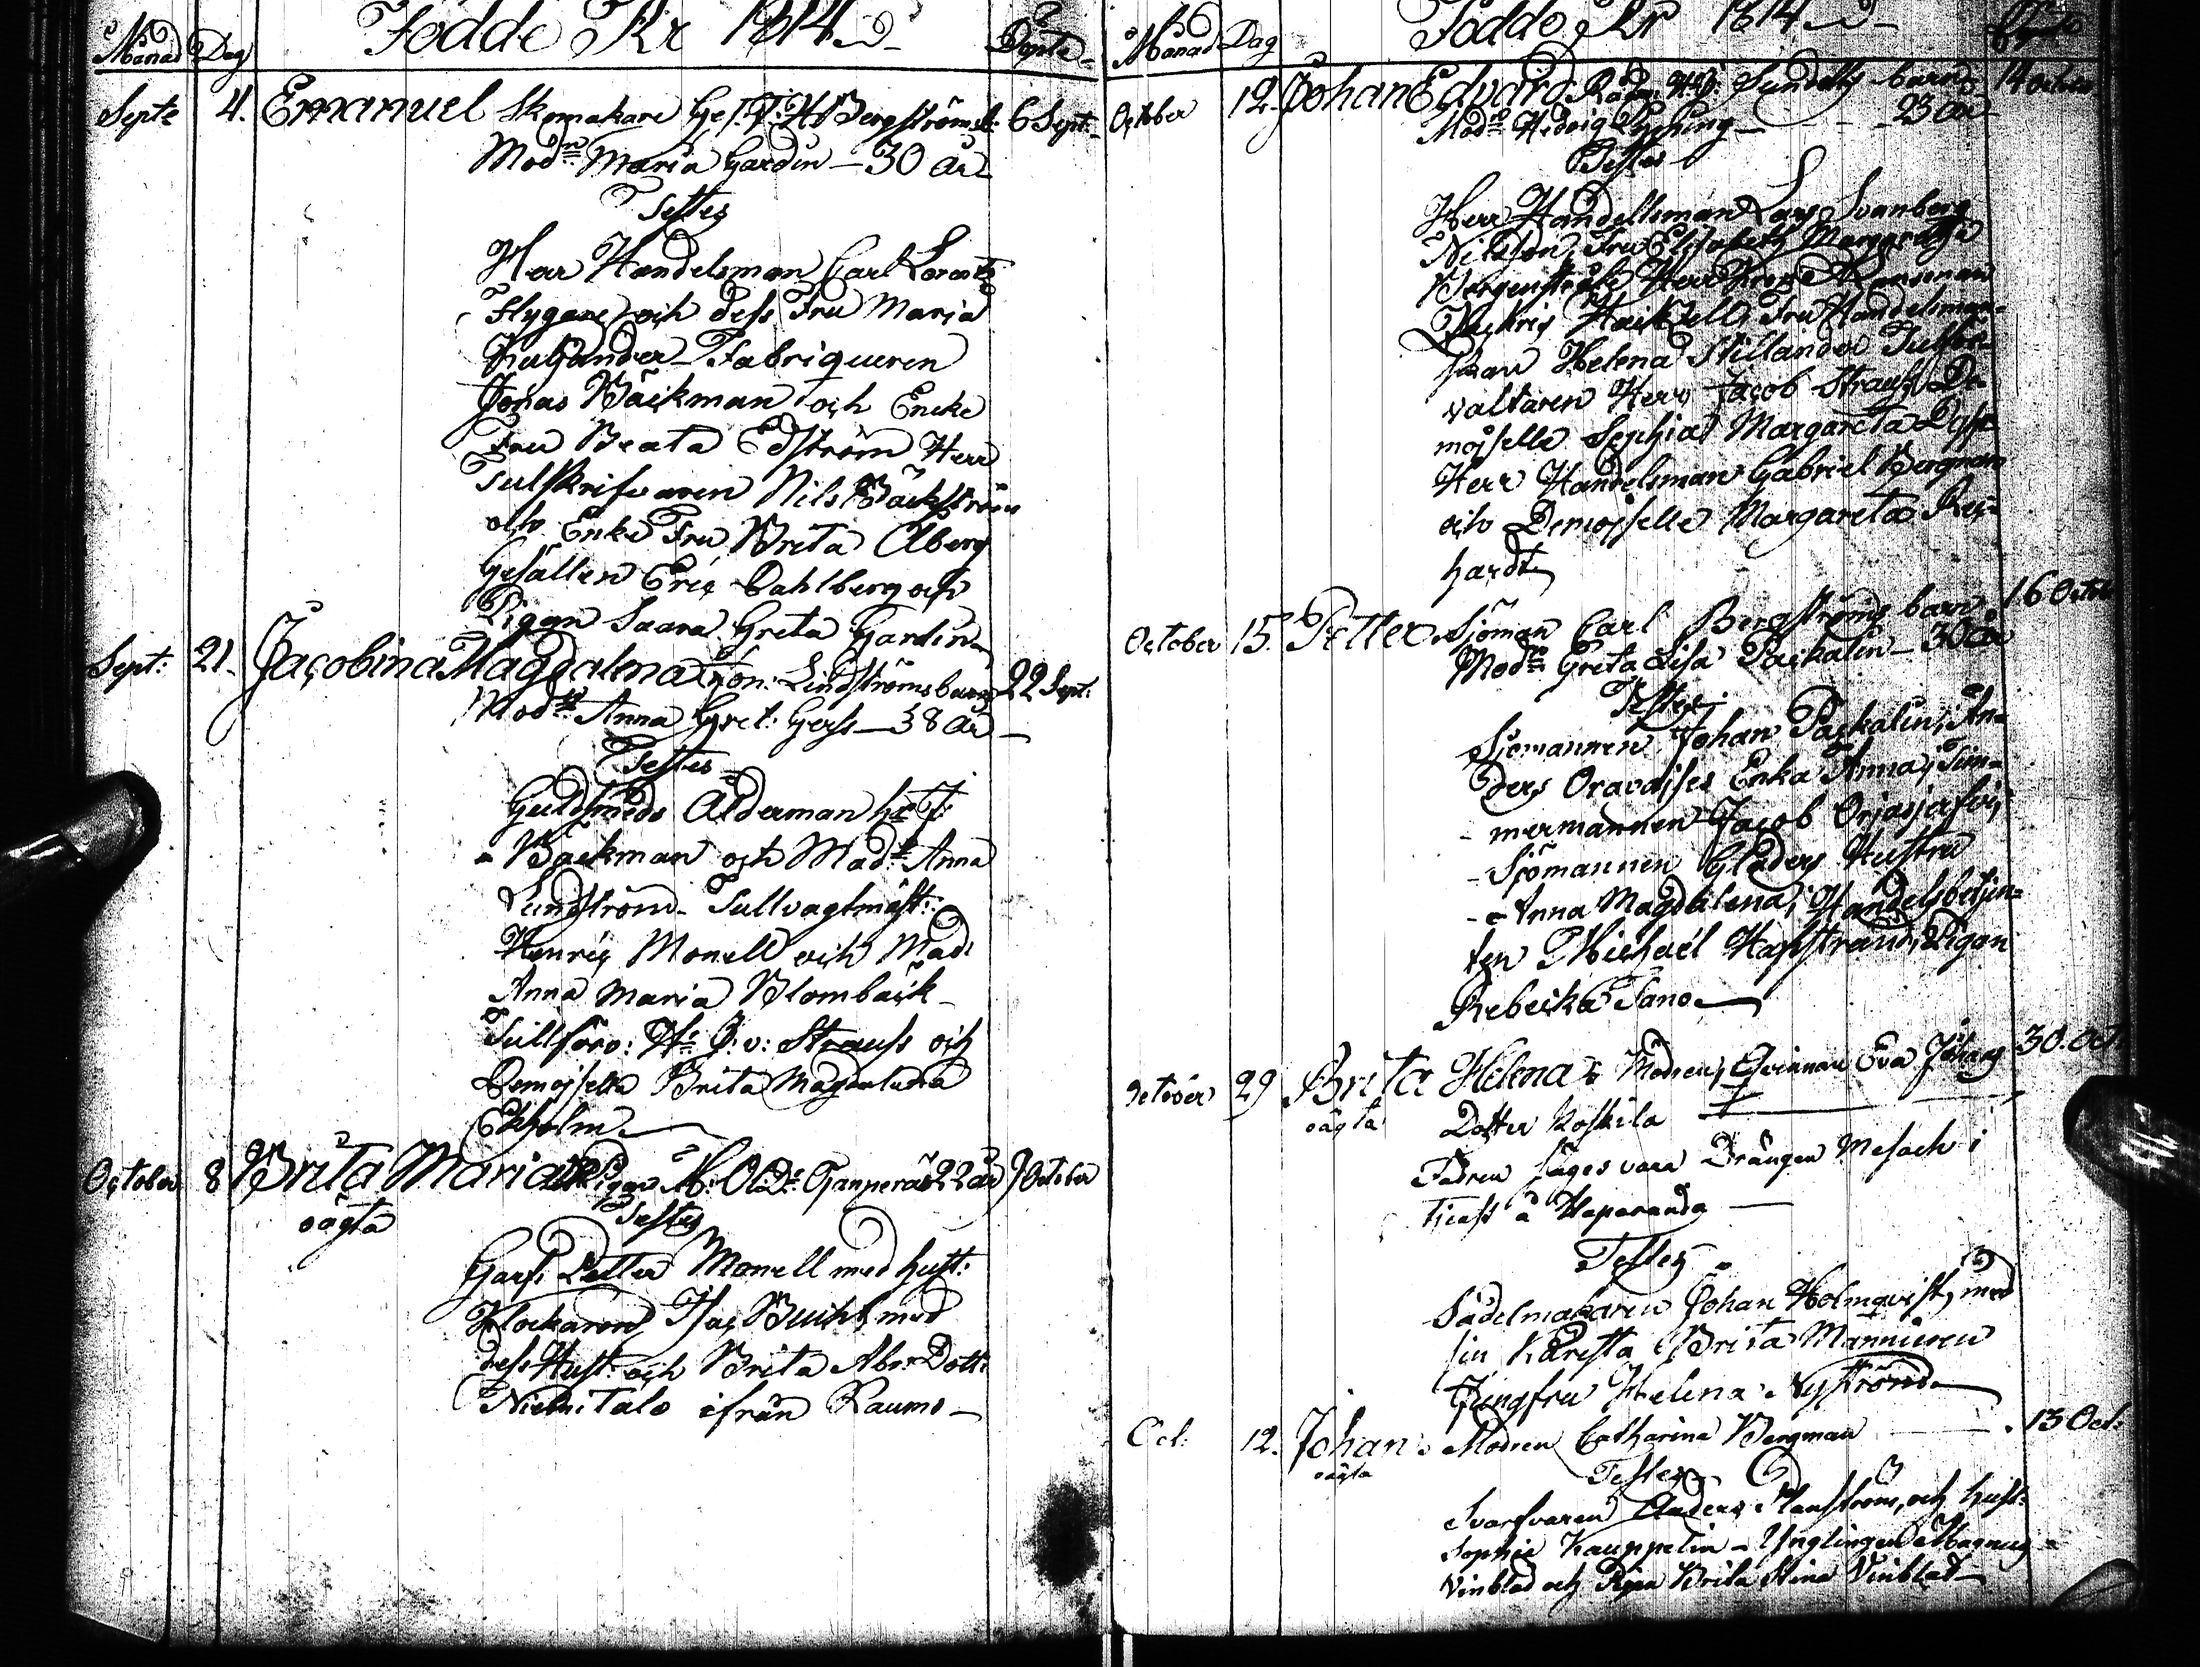 Månad Dag Födde År 1814 Döpte
Septe 4. Emanuel Skomakare Ges. Bergströms b: 6 Sept:
Modn Maria Gardin – 30 år
Testes
Herr Handelsman Carl Lorentz
Flygare och dess Fru Maria
Fabriqueren
Jonas Bäckman och Encke
Fru Beata Edström Herr
Tulskrifvaren Nils Bäckström
och Enke Fru Brita Åberg
Gesällen Eric Dahlberg och
Pigan Saara Greta Gardin
Sept: 21. Jacobina Magdalena Lindströms barn 22 Sept:
Modn Anna Gret: – 38 år
Testes
Guldsmeds Ålderman hr J:
Bäckman och Mad: Anna
Lundström – Tullvagtmäst:
Henric Monell och Mad:
Anna Maria Blombäck –
Tullförv: Hr J: v: Strauss och
Demoiselle Brita Magdalena
Ekholm
October 8 Brita Maria Pigan 22 år 9 October
oägta Testes
Garf: Petter Monell med hust:
Klockaren Isac med
dess Hust: och Brita Abr: Dott:
Niemitalo ifrån Raumo –
Månad Dag Födde År 1814
October 12. Johan Edvard barn 14 octobr
Modn Hedvig – 23 år
Testes
Herr Handellsman Lars Svanberg
Nilsson, Fru Elisabeth Margaretha
Herr
Fru Handelsman
skan Helena Stillander Tullför=
valtaren Herr Jacob Strauss De=
moiselle Sophia Margareta
Herr Handelsman Gabriel Bergman
och Demoiselle Margareta Rei=
hardt
October 15. Petter Sjöman Carl Bergströms barn 16 Octob
Modn Greta Lisa Paskalin – 30 år
Testes
Sjömannen Johan Paskalin, An=
ders Oravaises Enka Anna, Tim=
mermannen Jacob
Sjömannen Gladers Hustru
Anna Magdalena, Handelsbetjen=
ten Michaël Hasstrand, Pigan
Rebecka
October 29 Brita Helena Modren, Qvinnan Eva Johans 30. Oct.
oägta Dotter Koskila
Fadren säges vara Drängen Mesach i
å Haparanda
Testes
Sadelmakaren Johan Holmqvist, med
sin Käresta Brita Manninen
Jungfru Helena Nyström
Oct: 12. Johan Modren Catharina Bergman 13 Oct:
oägta Testes
Svarfvaren Anders och hust:
Sophie Kauppelin – Ynglingen Magnus
Vinblad och Pigan Brita Stina Vinblad